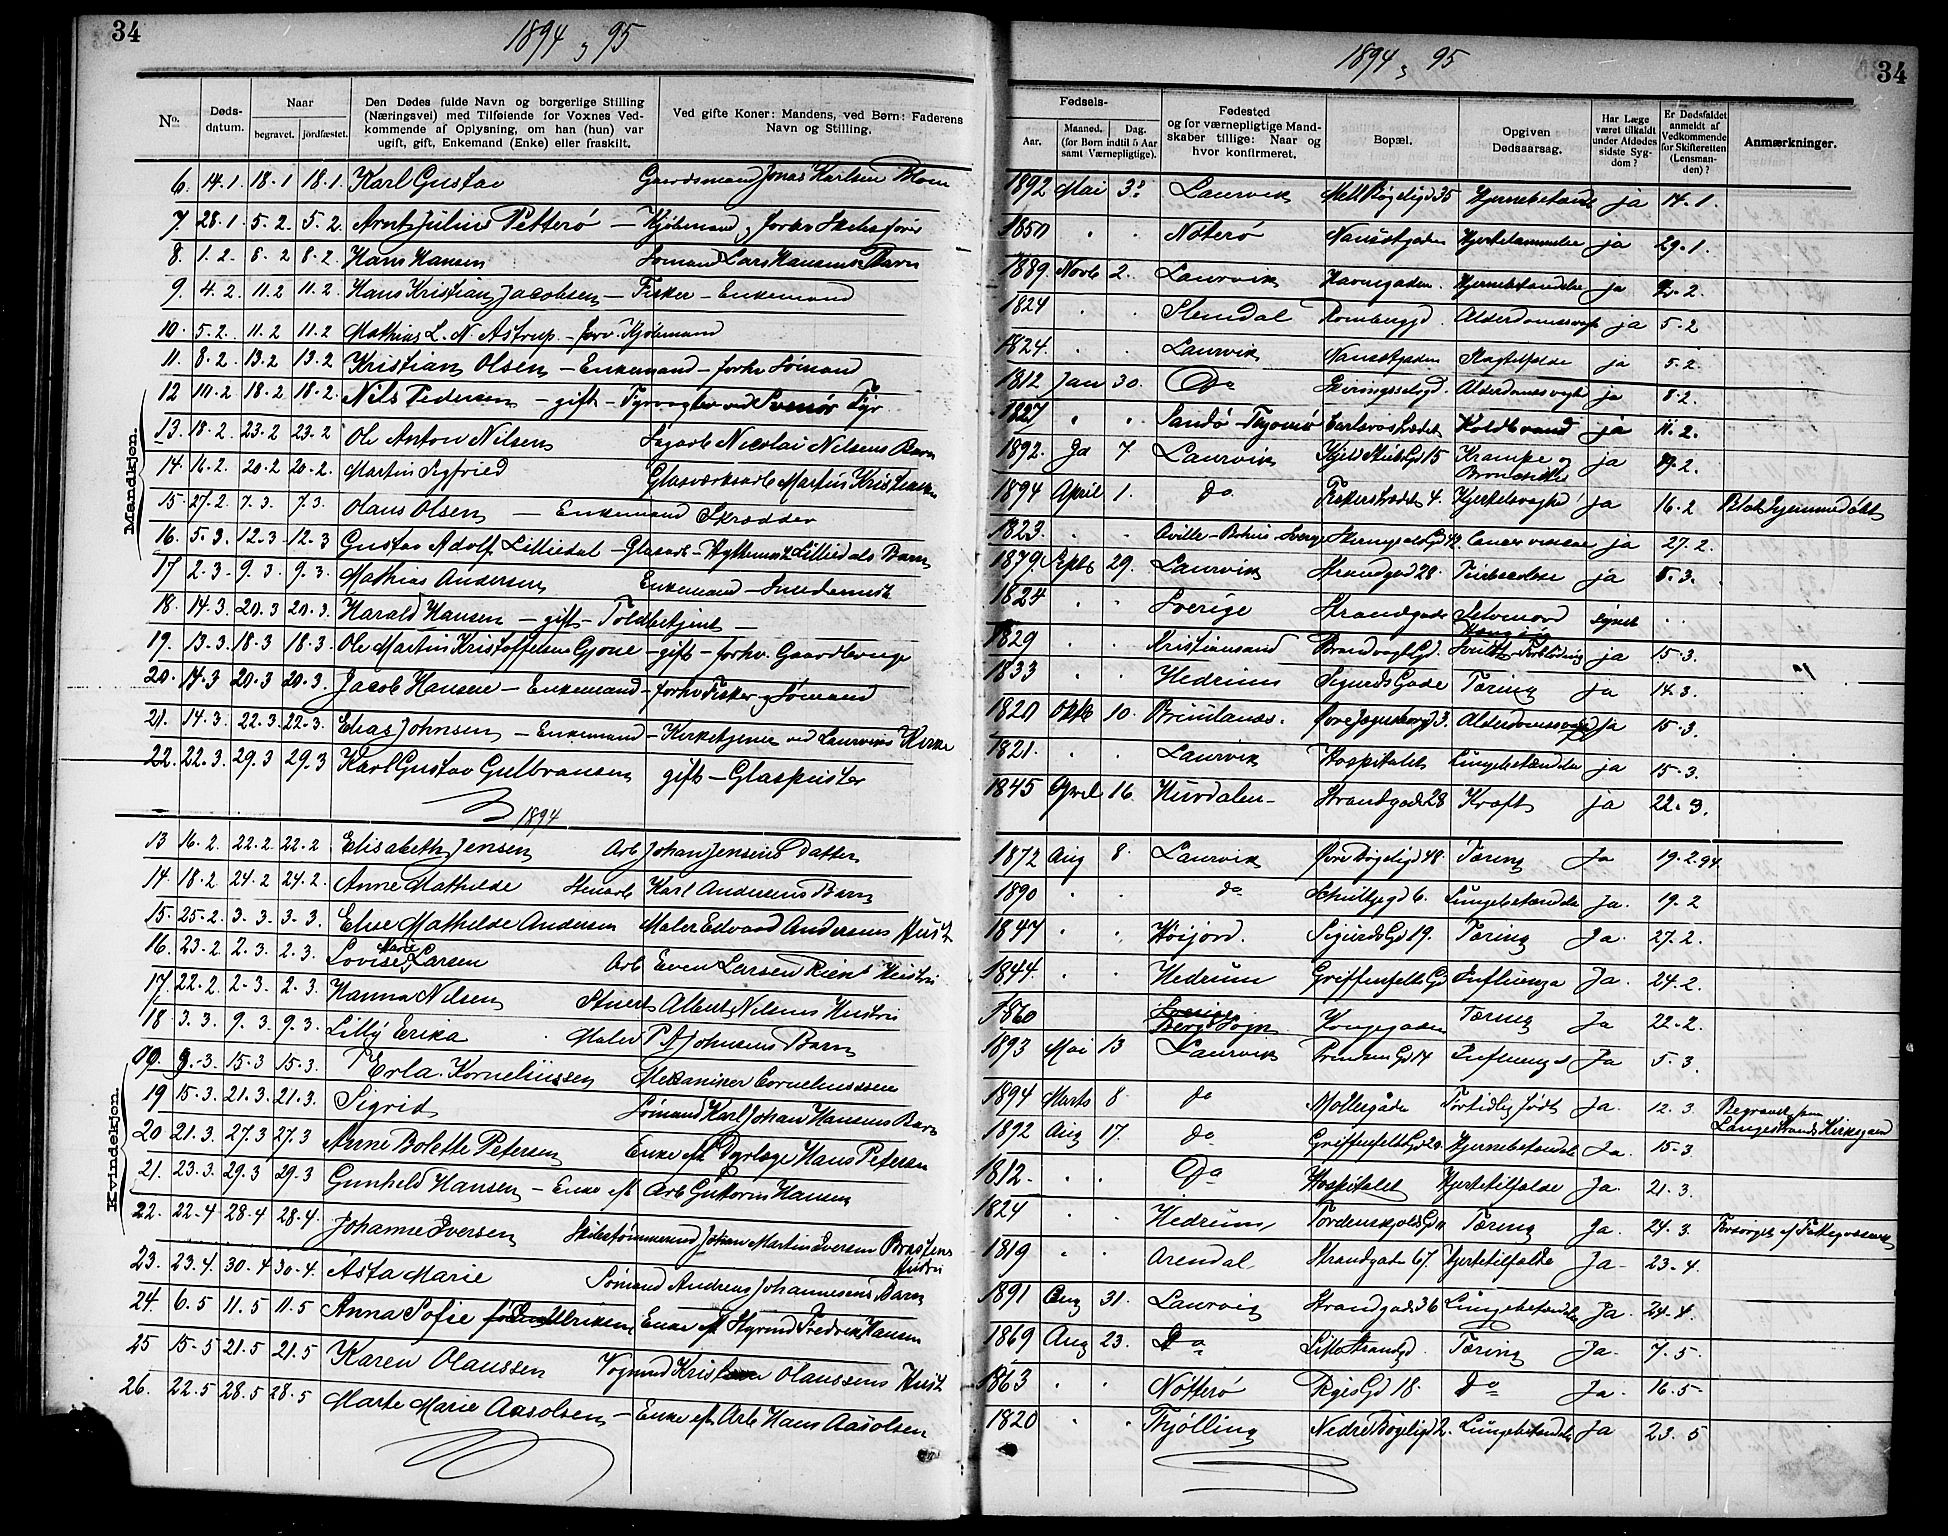 34
1894 & 95
No.
Døds-
datum.
Naar
begravet.
jordfæstet.
Den Dødes fulde Navn og borgerlige Stilling
(Næringsvei) med Tilføiende for Voxnes Ved-
kommende af Oplysning, om han (hun) var
ugift, gift, Enkemand (Enke) eller fraskilt.
Ved gifte Koner: Mandens, ved Børn: Faderens
Navn og Stilling.
Mandkjøn.
6. 14.1. 18.1 18.1. Karl Gustav Gaardsmand Jonas Karlsen
7. 28.1 5.2. 5.2. Arnt Julius Petterø — Kjøbmand
8. 1.2. 8.2 8.2. Hans Hansen Sømand Lars Hansens Barn
9. 4.2. 11.2 11.2. Hans Kristian Jacobsen — Fisker — Enkemand
10. 5.2. 11.2 11.2 Mathias L. N. Astrup — forv. Kjøbmand
11. 8.2. 13.2 13.2 Kristian Olsen — Enkemand — forhv Sømand
12 10.2 18.2 18.2. Nils Pedersen — gift — Fyrvogter ved Svenør Fyr
13. 18.2. 23.2 23.2 Ole Anton Nilsen Sagarb Nicolai Nilsens Barn
14. 16.2. 20.2 20.2. Martin Sigfried Glasværksarb Martin Kristensen
15. 27.2. 7.3. 7.3. Olaus Olsen — Enkemand Skrædder
16. 5.3. 12.3 12.3 Gustav Adolf Lilliedal — Glasarb — Lilliedals Barn
17 2.3. 9.3. 9.3. Mathias Andersen Enkemand — Smedemest
18. 14.3. 20.3 20.3. Harald Hansen — gift — Toldbetjent —
19. 13.3. 18.3 18.3. Ole Martin Kristoffersen Gjone — gift — forhv. Gaardbruger
20. 14.3 20.3 20.3. Jacob Hansen — Enkemand — forhv Fisker og Sømand
21. 14.3. 22.3 22.3. Elias Johnsen — Enkemand — Kirketjener ved Laurviks Kirke
22. 22.3. 29.3 29.3 Karl Gustav Gulbransen gift — Glaspuster
1894
Kvindekjøn.
13 16.2. 22.2 22.2 Elisabeth Jensen Arb Johan Jensens Datter
14 18.2 24.2 24.2. Anne Mathilde Stuearb Karl Andersens Barn
15. 25.2. 3.3. 3.3. Elise Mathilde Andersen Maler Edvard Andersens Hust
16. 23.2 2.3. 2.3. Lovise Marie Larsen Arb Even Larsen Hustru
17. 22.2 2.3. 2.3. Hanna Nilsen Albert Nilsens Hustru
18. 3.3. 9.3. 9.3. Lilly Erika Maler P A Johnsens Barn
00. 9.3. 15.3 15.3. Erla Korneliussen Mekaniker Corneliussen
19 15.3. 21.3. 21.3. Sigrid Sømand Karl Johan Hansens Barn
20 21.3. 27.3 27.3 Anne Bolette Petersen Enke eft Dyrlæge Hans Petersen
21. 23.3. 29.3 29.3 Gunhild Hansen — Enke eft Arb Guttorm Hansen
22. 22.4 28.4 28.4. Johanne Iversen Skibstømmermd Johan Martin Iversen
Hustru
23. 23.4. 30.4 30.4. Asta Marie Sømand Andreas Johannesens Barn
24. 6.5 11.5 11.5 Anna Sofie Ulriksen, Enke eft Styrmd Fredrik Hansen
25 15.5 21.5 21.5 Karen Olaussen Vognmd Kristian Olaussens Hust
26. 22.5 28.5 28.5 Marte Marie Aasolsen — Enke eft Arb Hans Aasolsen
34
1894 & 95
Fødsels-
Aar.
Maaned. Dag.
(for Børn indtil 5 Aar
samt Værnepligtige).
Fødested
og for værnepligtige Mand-
skaber tillige: Naar og
hvor konfirmeret.
Bopæl.
Opgiven
Dødsaarsag.
Har Læge
været tilkaldt
under Afdødes
sidste Syg-
dom?
Er Dødsfaldet
anmeldt af
Vedkommende
for Skifteretten
(Lensman-
den)?
Anmærkninger.
1892 Mai 3 Laurvik 35 Hjernebetænd ja 14.1.
1850 . . Nøterø Nansetgaden Hjertelammelse ja 29.1.
1889. Novb 2. Laurvik Havnegaden. Hjernebetændelse ja 2.
1824 . . Slemdal Alderdomssvagh ja 5.2
1824. . . Laurvik Nansetgaden Slagtilfælde ja 5.2.
1812 Jan 30. Do Alderdomssvagh ja 8.2.
1827 . . Sandø Koldbrand ja 11.2.
1892. Ja 7. Laurvik 15 Krampe og
Bronchitis ja 2.
1894 April 1. do Fiskerstrædet 4. Hjertesvaghed ja 16.2
1823. . . ja 27.2.
1879. Septb 29. Laurvik Strandgad 28. Tuberculose ja 5.3.
1824 . . Sverige Strandgade Selvmord synet . .
1829 . . Kristiansand ja 15.3.
1833 Hedrum Sigurds Gade Tæring ja 14.3.
1820 Oktb 10. Brunlanæs. 3. Alderdomssvagh ja 15.3.
1821. . . Laurvik Hospitalet Lungebetændelse ja 15.3.
1845 April 16. Hurdalen Strandgade 28 Kræft ja 22.3.
1872 Aug 8. Laurvik Øvre Bøgeligd 48. Tæring Ja 19.2.94
1890 . . do 6. Lungebetændelse Ja. 19.2
1847 . . Høijord. Sigurds Gd 19. Tæring Ja. 27.2.
1844. . . Hedrum Griffenfelts Gd Influenza Ja. 24.2.
1860 Sverige
Bergs Sogn Kongegaden Tæring Ja 22.2.
1893 Mai 13 Laurvik Prinsens Gd 14 Influenza Ja 5.3.
1894 Marts 8. do Møllegade Fortidlig født Ja. 12.3. Begravet paa
Langestrands Kirkegaard
1892 Aug 17. do Griffenfelts Gd 20. Hjernebetændel Ja. 15.3.
1812. . . Do Hospitalet Hjertetilfælde Ja. 21.3.
1824 . . Hedrum Tordenskjolds Gd 11 Tæring Ja. 24.3. Forsørget af Fattigvæsenet
1819 . . Arendal Strandgade 67. Hjertetilfælde Ja 23.4.
1891 Aug 31. Laurvig Strandgade 36 Lungebetændelse Ja. 24.4.
1869 Aug 23. Do Lille Strandgd. Tæring Ja. 7.5.
1863 . . Nøtterø 18. do Ja. 16.5.
1820 . . Thjølling Nedre Bøgeligd 2. Lungebetændelse Ja 23.5